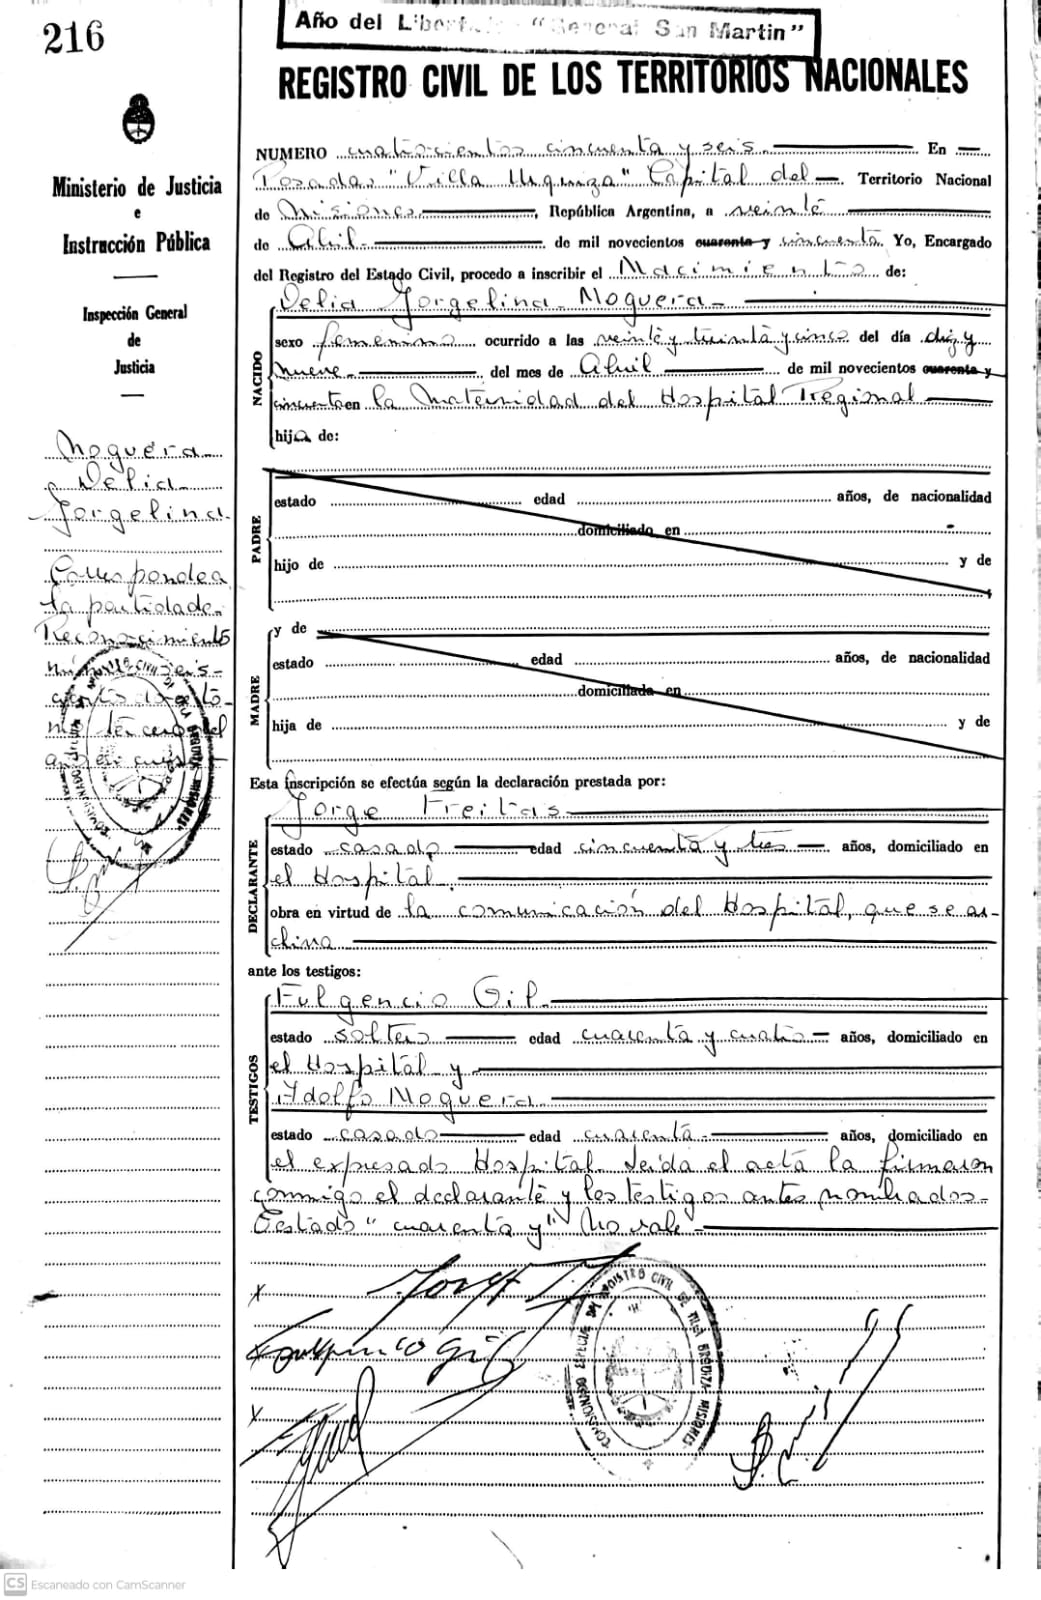 216
Año del Libertador "General San Martin"
REGISTRO CIVIL DE LOS TERRITORIOS NACIONALES
Ministerio de Justicia
e
Instrucción Pública
Inspección General
de
Justicia
Noguera
Delia
Jorgelina
Corresponde a
la partida de
Reconocimiento
número seis-
cientos
tercero del
NUMERO cuatrocientos cincuenta y seis. En
Posadas "Villa Urquiza" Capital del Territorio Nacional
de Misiones, República Argentina, a veinte
de Abril. de mil novecientos cuarenta y cincuenta. Yo, Encargado
del Registro del Estado Civil, procedo a inscribir el Nacimiento de:
Delia Jorgelina Noguera
NACIDO
sexo femenino ocurrido a las veinte y treinta y cinco del día diez y
nueve del mes de Abril de mil novecientos cuarenta y
cincuenta en la Maternidad del Hospital Regional
hija de:
PADRE
estado edad años, de nacionalidad
domiciliado en
hijo de y de
MADRE
y de
estado edad años, de nacionalidad
domiciliada en
hija de y de
Esta inscripción se efectúa según la declaración prestada por:
DECLARANTE
Jorge Freitas
estado casado edad cincuenta y tres años, domiciliado en
el Hospital.
obra en virtud de la comunicación del Hospital, que se ar-
chiva
ante los testigos:
TESTIGOS
Fulgencio Gil
estado soltero edad cuarenta y cuatro años, domiciliado en
el Hospital y
Adolfo Noguera
estado casado edad cuarenta años, domiciliado en
el expresado Hospital. Leída el acta la firmaron
conmigo el declarante y los testigos antes nombrados-
Testado "cuarenta y" No vale
Fulgencio Gil
COMISIONADO ESPECIAL DEL REGISTRO CIVIL DE VILLA URQUIZA MISIONES
CS Escaneado con CamScanner